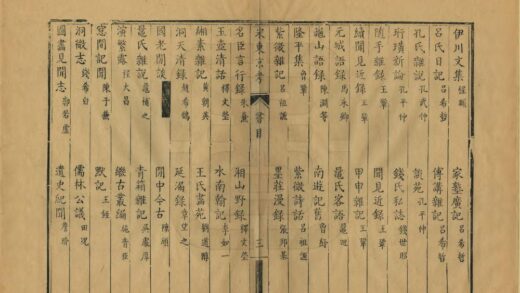 伊川文集 程頤 家塾廣記 呂希哲
呂氏日記 呂希哲 傳講雜記 呂希哲
孔氏雜說 孔武仲 談苑 孔平仲
珩璜新論 孔平仲 錢氏私誌 錢世昭
隨手雜錄 王鞏 聞見近錄 王鞏
續聞見近錄 王鞏 甲申雜記 王鞏
元城語錄 馬永卿 鼂氏客語 鼂迥
龜山語錄 陳淵等 南遊記舊 曾紆
紫微雜記 呂祖謙 紫微詩話 呂祖謙
隆平集 曾鞏 墨莊漫錄 張邦基
宋東京考 書目 三
名臣言行錄 朱熹 湘山野錄 釋文瑩
玉壺清話 釋文瑩 水南翰記 李如一
緗素雜記 黃朝英 王氏畵苑 劉道醇
洞天清錄 趙希鵠 延漏錄 章望之
國老閒談 閒中今古 陳頎
鼂氏雜說 鼂補之 青箱雜記 吳處厚
演繁露 程大昌 綴古叢編 施青臣
窓間記聞 陳子兼 默記 王銍
洞微志 錢希白 儒林公議 田況
圖畵見聞志 郭若虛 遺史紀聞 詹玠